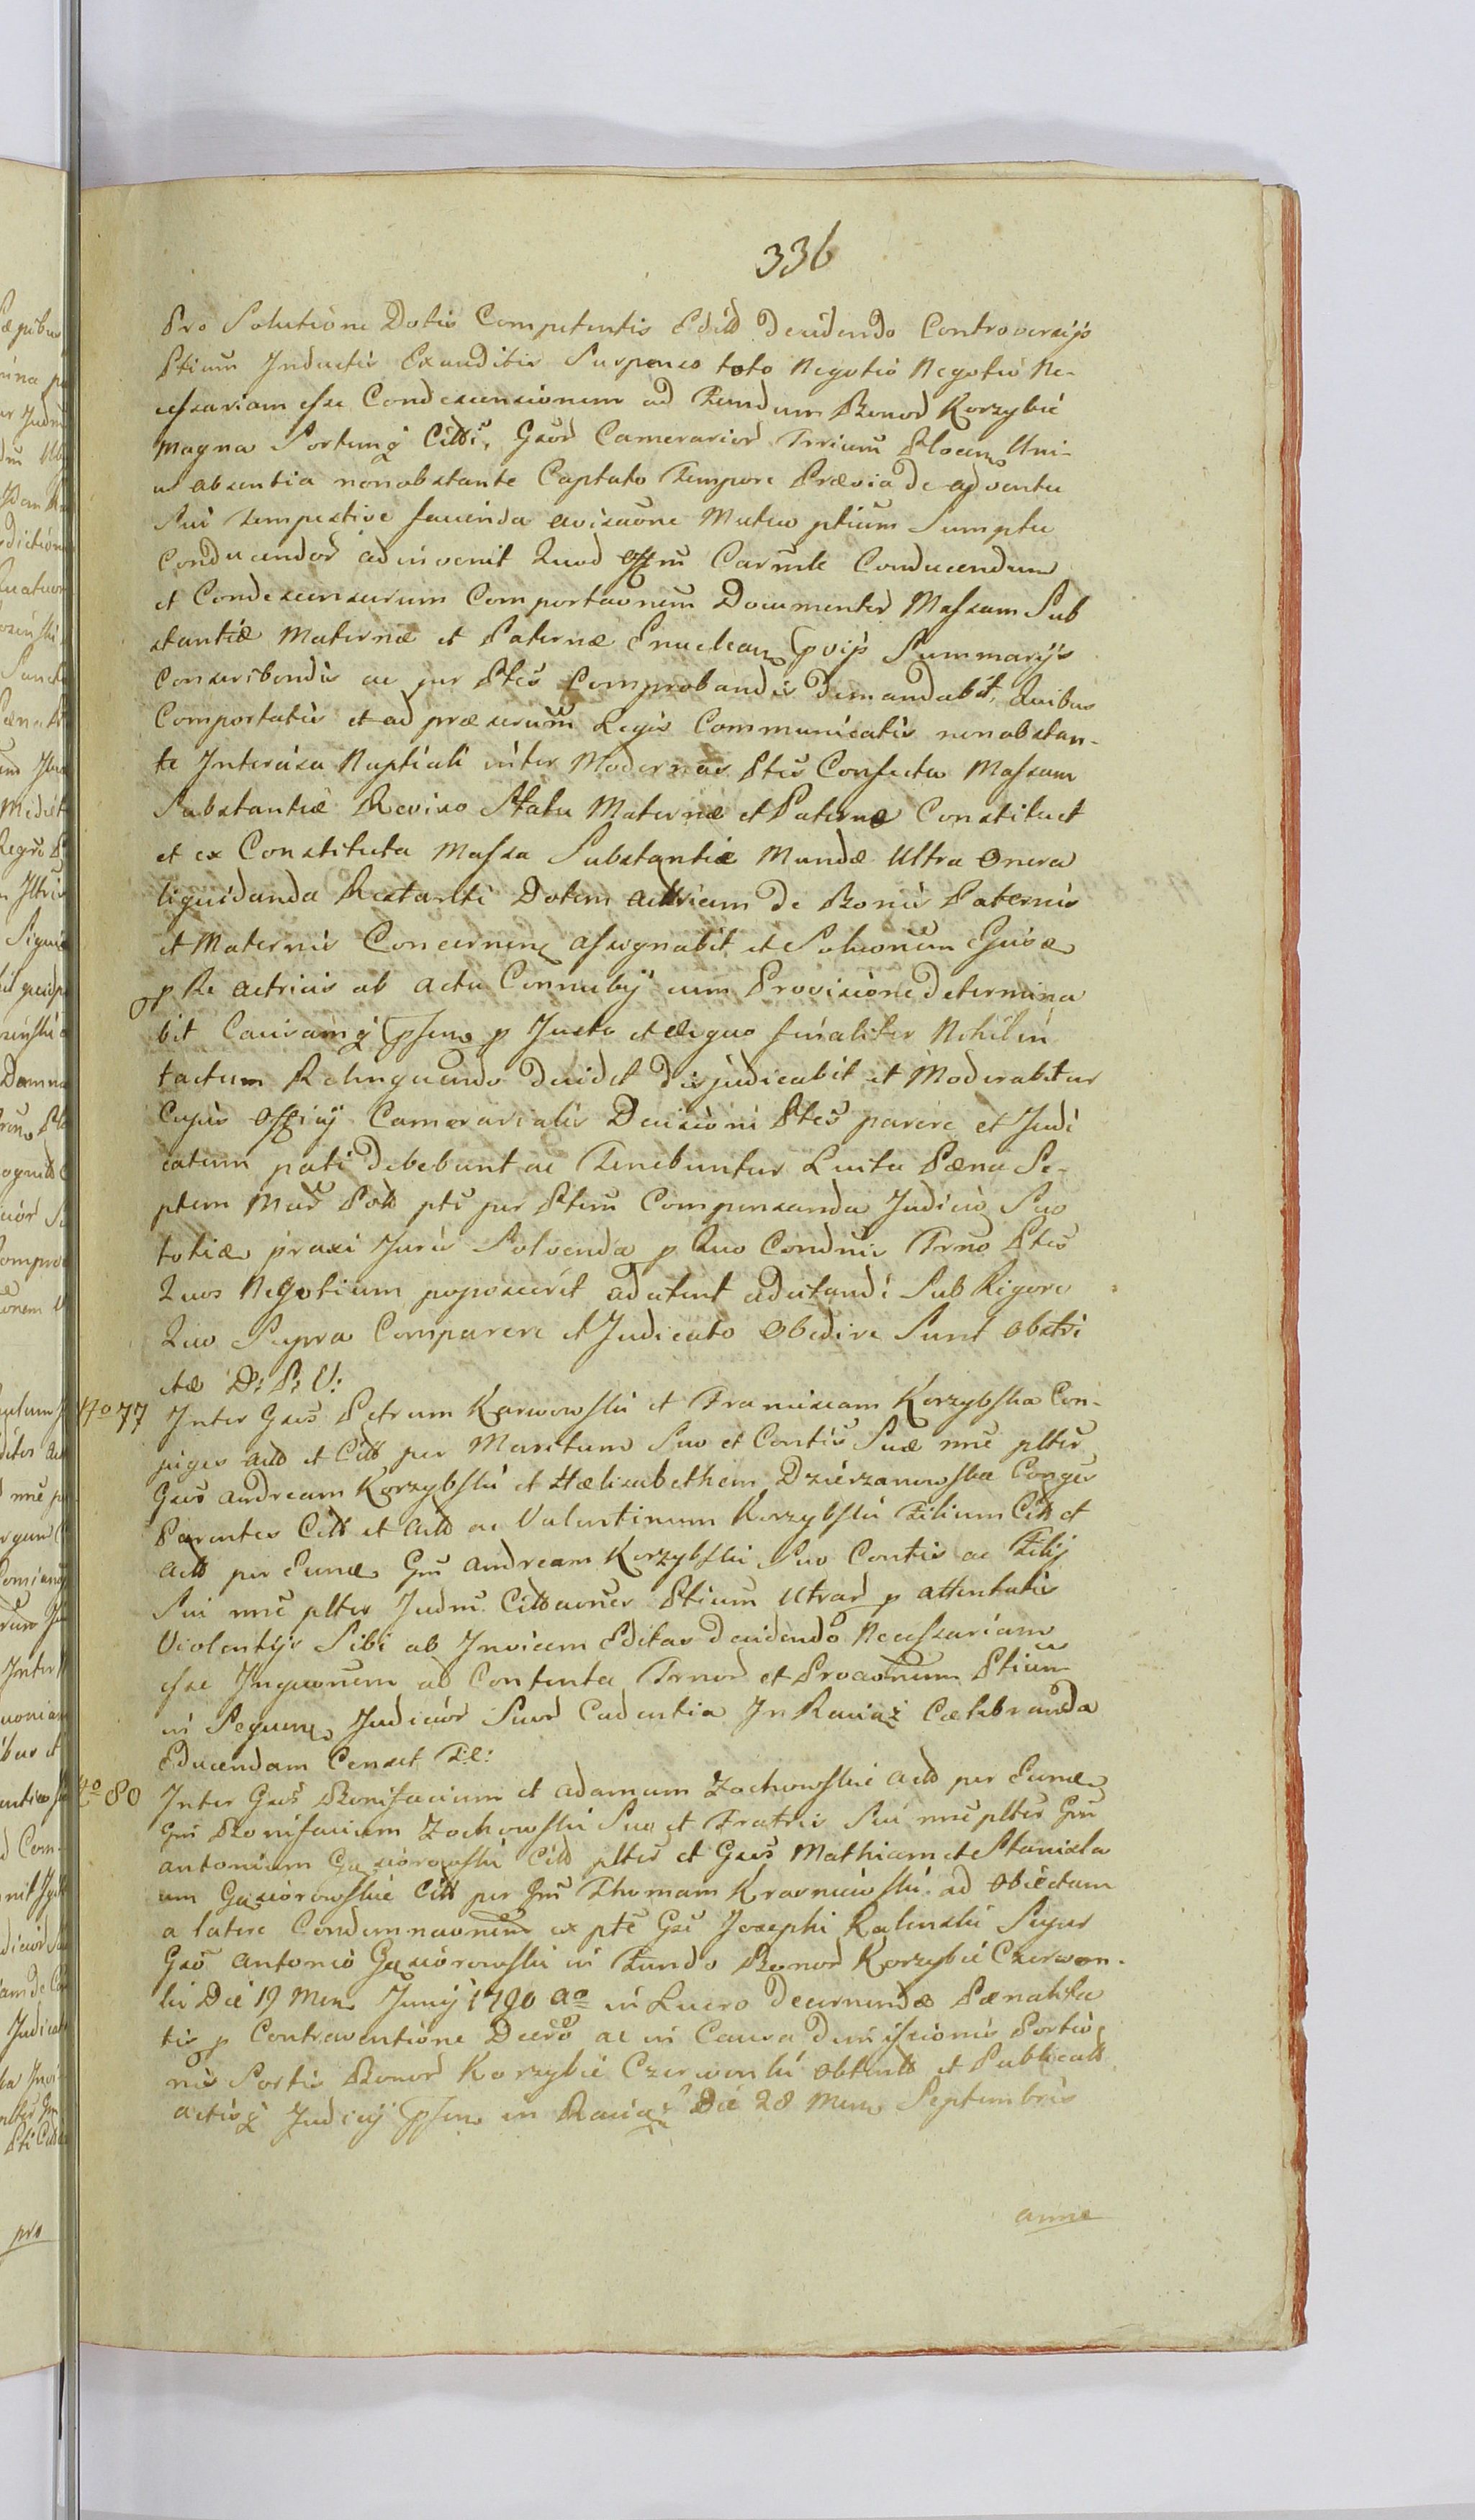 336
Pro Solutione Dotis Competentis Editt Decidendo Controversijs
Ptium Inductis Exauditis Suspenso toto Negotio Negotio Ne-
cessariam esse Condescensionem ad Fundum Bonor Korzybie
Magna Sortemq Citti, Gsor Camerarior Trrium Plocen Uni-
us absentia nonobstante Captato Tempore Prævia de adventu
Sui tempestive facienda avisaone Mutuo ptium Sumptu
Conducendor adinvenit Quod Offm Carmle Conducendum
et Condescensurum Comportaonem Documentor Massam Sub
stantiæ Maternæ et Paternæ Enuclean Summarijs
Conscribendis ac per Ptes Comprobandis Demandabit, Quibus
Comportatis et ad præscrum Legis Communicatis nonobstan-
te Intercisa Nuptiali inter Modernas Ptes Confecta Massam
Substantiæ Reviso Statu Maternæ et Paternæ Constituet
et ex Constituta Massa Substantiæ Mundæ Ultra Onera
liquidanda Restanti Dotem Actricem De Bonis Paternis
et Maternis Concernen assignabit et Soluonem Ejusæ
p Re Actricis ab actu Connubij cum Provisione Determina
bit Causamq psen p Justo et Æquo finaliter Nihil in
tactum Relinquendo Decidet Disjudicabit et Moderabitur
Cujus Officij Camerarialis Decisioni Ptes parere et Judi
catum pati Debebunt ac Tenebuntur Luita Pæna Se-
ptem Mar Poll pti per Ptem Compensanda Judicio Suo
toties praxi Juris Solvenda p Quo Condnis Trno Ptes
Quos Negotium poposcerit adcitent adcitandi Sub Rigore
Quo Supra Comparere et Judicato Obedire Sunt Obstri
ctæ D: P: V:
No 77 Inter Gsos Petrum Karwowski et Franciscam Korzybska Con-
juges Act et Citt per Maritum Suo et Contis Suæ nne pltes
Gsos Andream Korzybski et Hælisabethem Dzierzanowska Conges
Parentes Citt et Act ac Valentinum Korzybski Filium Citt et
Act per Eund Gm Andream Korzybski Suo Contis ac Filij
Sui nne pltes Judm Cittaones Ptium Utrar p attentatis
Violentijs Sibi ab Invicem Editas Decidendo Necessariam
esse Inquonem ab Contenta Trnor et Procaonum Ptium
in Sequen Judicior Suor Cadentia In Raciąż Cælebranda
Educendam Censet T:E:
No 80 Inter Gsos Bonifacium et Adamum Zochowskie Act per Eund
Gm Bonifacium Zochowski Suo et Fratris Sui nne pltes Gm
Antonium Gąsiorowski Citt pltes et Gsos Mathiam et Stanisla
um Gąsiorowskie Citt per Gm Thomam Krasniewski ad Obiectam
a latere Condemnaonem ex pte Gsi Josephi Kalinski Super
Gso Antonio Gąsiorowski in Fundo Bonor Korzybie Czerwon-
ki Die 19 Men Junij 1790 Ao in Lucro Decernendæ Pænalita
tis p Contraventione Decro ac in Causa Divissionis Portio
nis Sortis Bonor Korzybie Czerwonki Obtent et Publicatt
Actisq Judicij psen in Raciąż Die 28 Men Septembris
anno